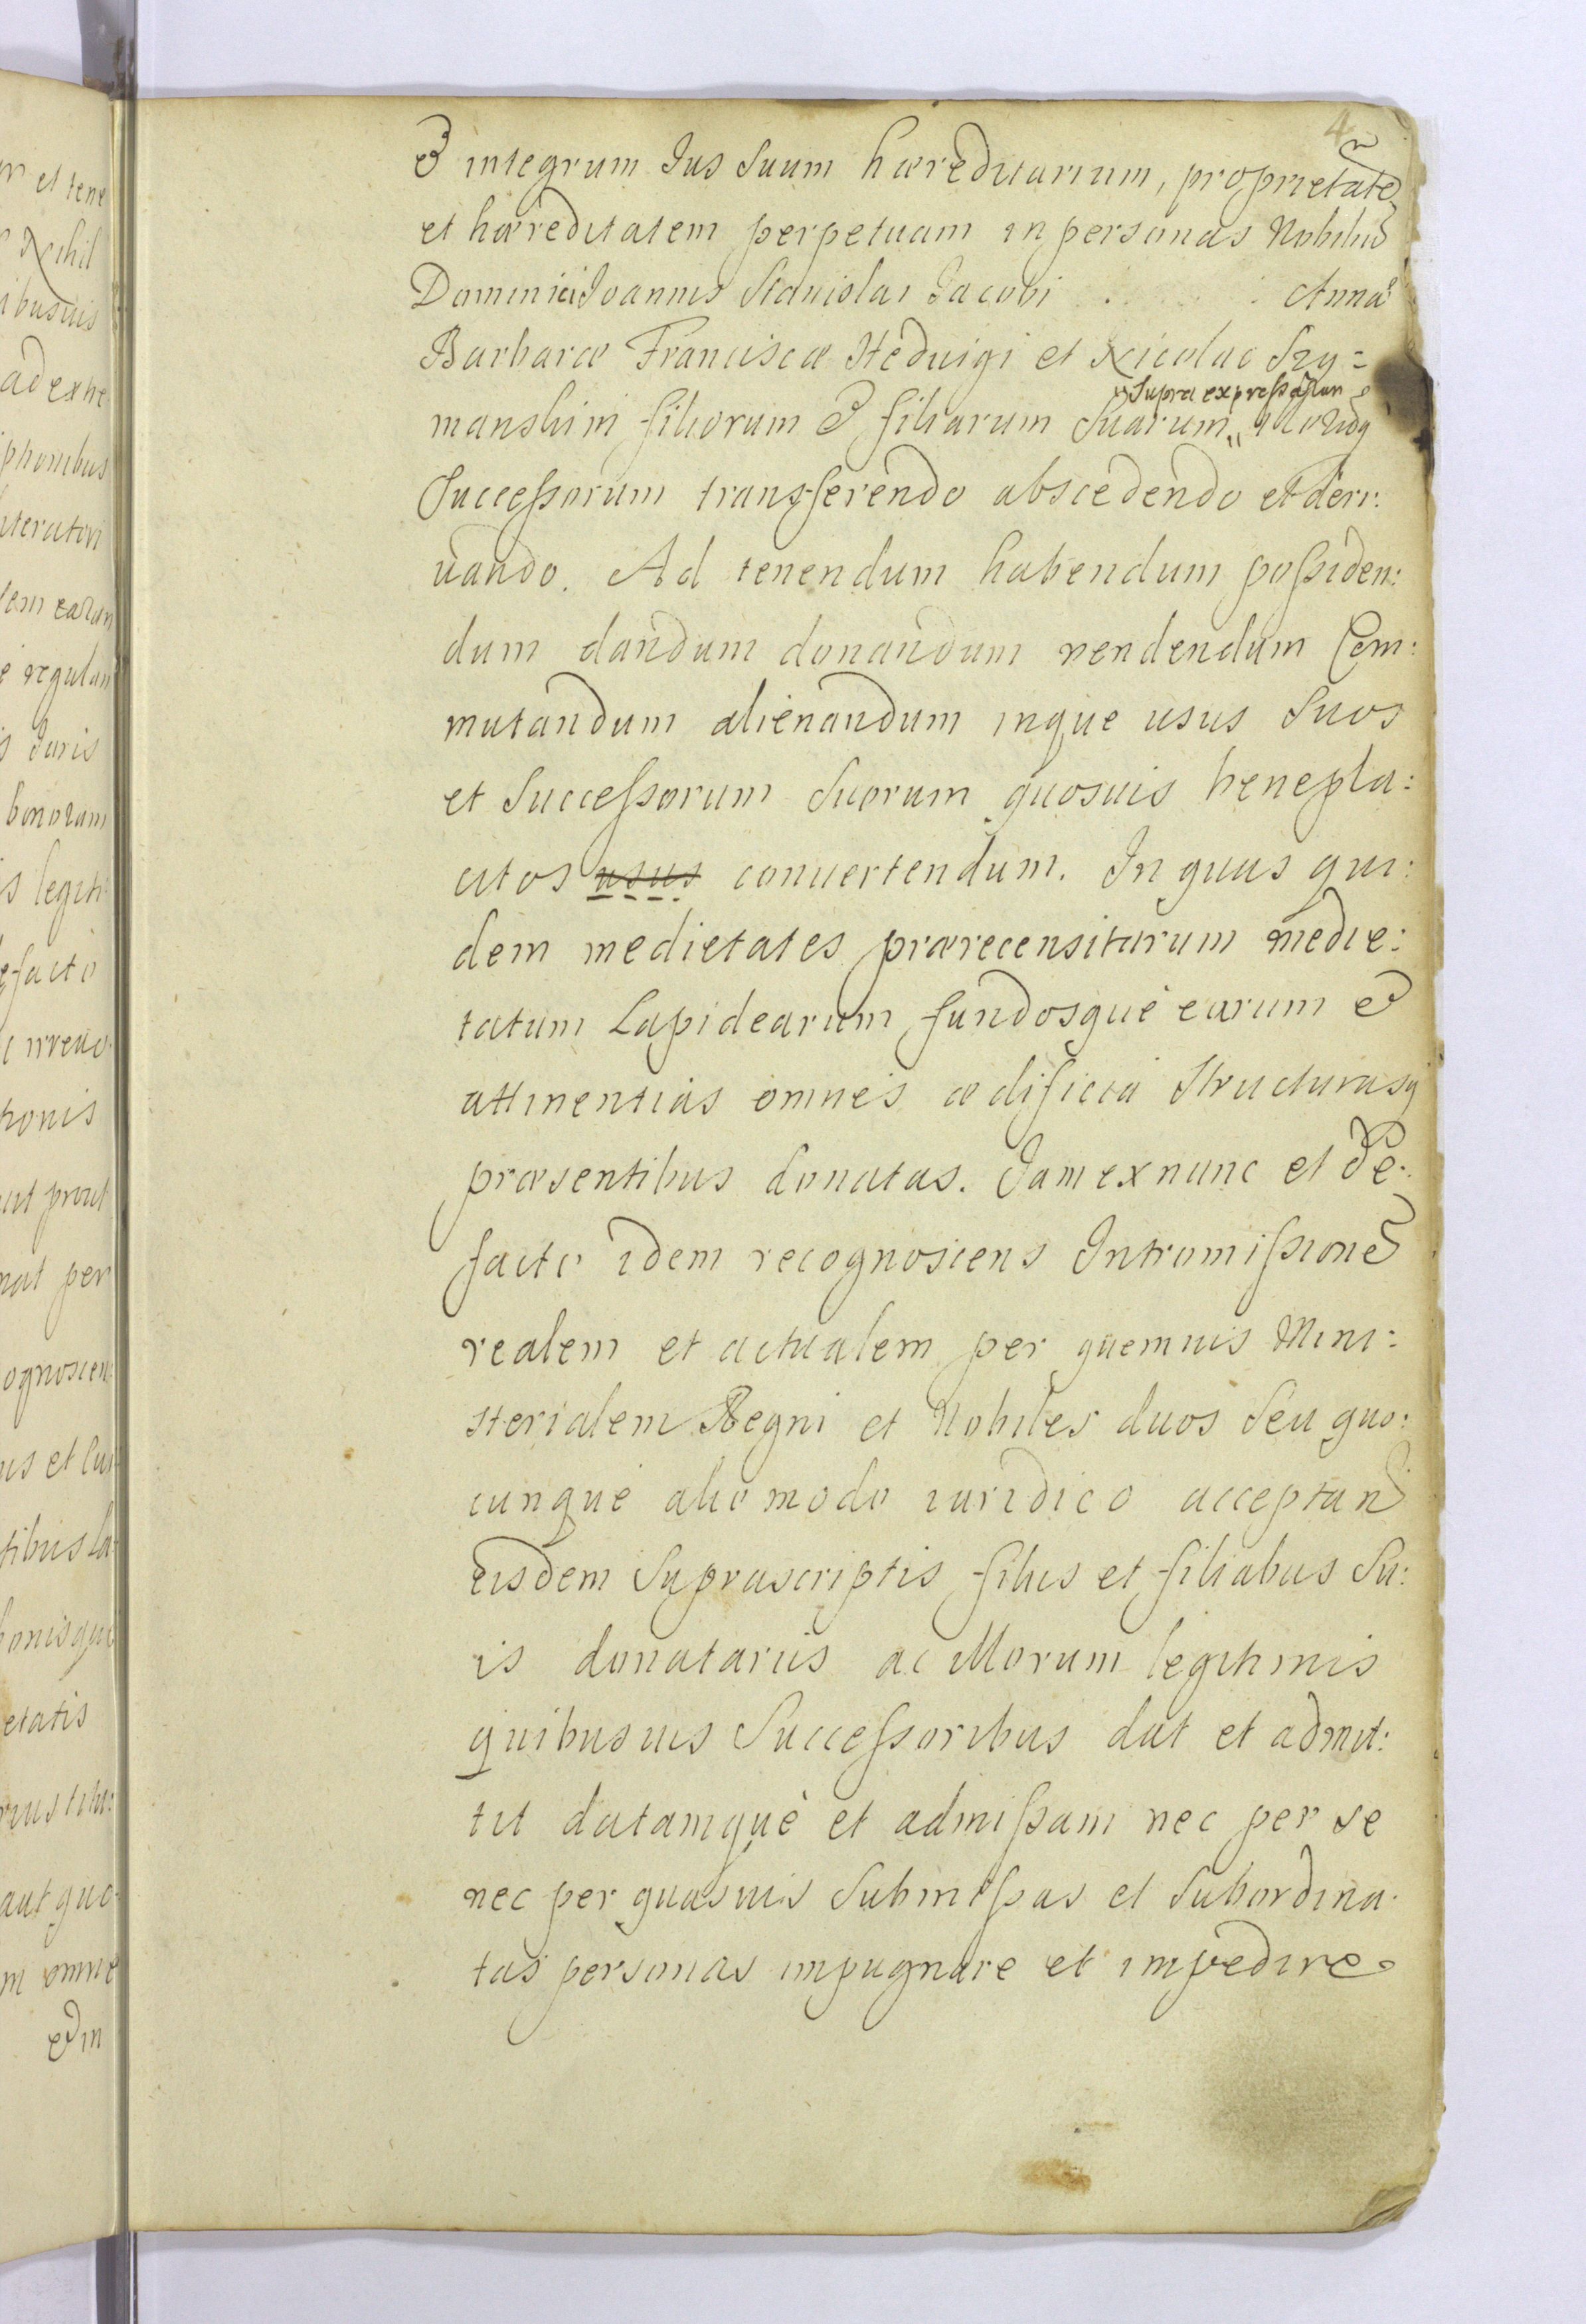 4
& integrum Jus Suum hæreditarium, proprietatẽ
et hæreditatem perpetuam in personas Nobiliũ
Dominici Joannis Stanislai Jacobi . . . . Annæ
Barbaræ Franciscæ Heduigi et Nicolao Szy=
Supra expressaꝝ
manskim filiorum & filiarum Suarum illorũq
Successorum transferendo abscedendo et deri:
uando. Ad tenendum habendum possiden:
dum dandum donandum vendendum Com:
mutandum alienandum inque usus Suos
et Successorum Suorum quosuis benepla:
citos usus conuertendum. In quas qui:
dem medietates prærecensitarum medie:
tatum Lapidearum fundosquè earum &
attinentias omnes ædificia Structurasq
præsentibus donatas. Jam ex nunc et de:
facto idem recognoscens Intromissionẽ
realem et actualem per quemuis Mini:
sterialem Regni et Nobiles duos Seu quo:
cunque alio modo iuridico acceptan
eisdem Suprascriptis filiis et filiabus Su:
is donatariis ac illorum legitimis
quibusuis Successoribus dat et admit:
tit datamquè et admissam nec per se
nec per quasuis Submissas et Subordina:
tas personas impugnare et impedire
et tene
Nihil
ibusuis
ad exhe
ptionibus
iteratori
regulan
Juris
bonorum
legiti
facto
irreuo
tionis
prout
per
ognoscen:
us et Cui
tibus La:
bonisque
etatis
aut quo
omne
& in